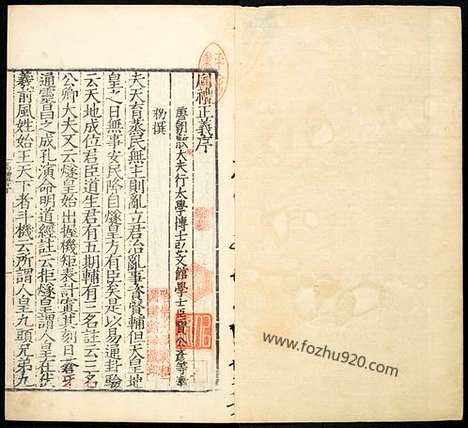 周禮正義序
唐朝散大夫行太學博士弘文館學士臣賈公彥等奉
勑撰
夫天育蒸民無主則亂立君治亂事資賢輔但天皇地
皇之日無事安民降自燧皇方有臣矣是以易通卦驗
云天地成位君臣道生君有五期輔有三名註云三名
公卿大夫又云燧皇始出握機矩表計寘其刻曰蒼牙
通靈昌之成孔演命明道經註云拒燧皇謂人皇在伏
羲前風姓始王天下者斗機云所謂人皇九頭兄弟九
www.fozhu920.com